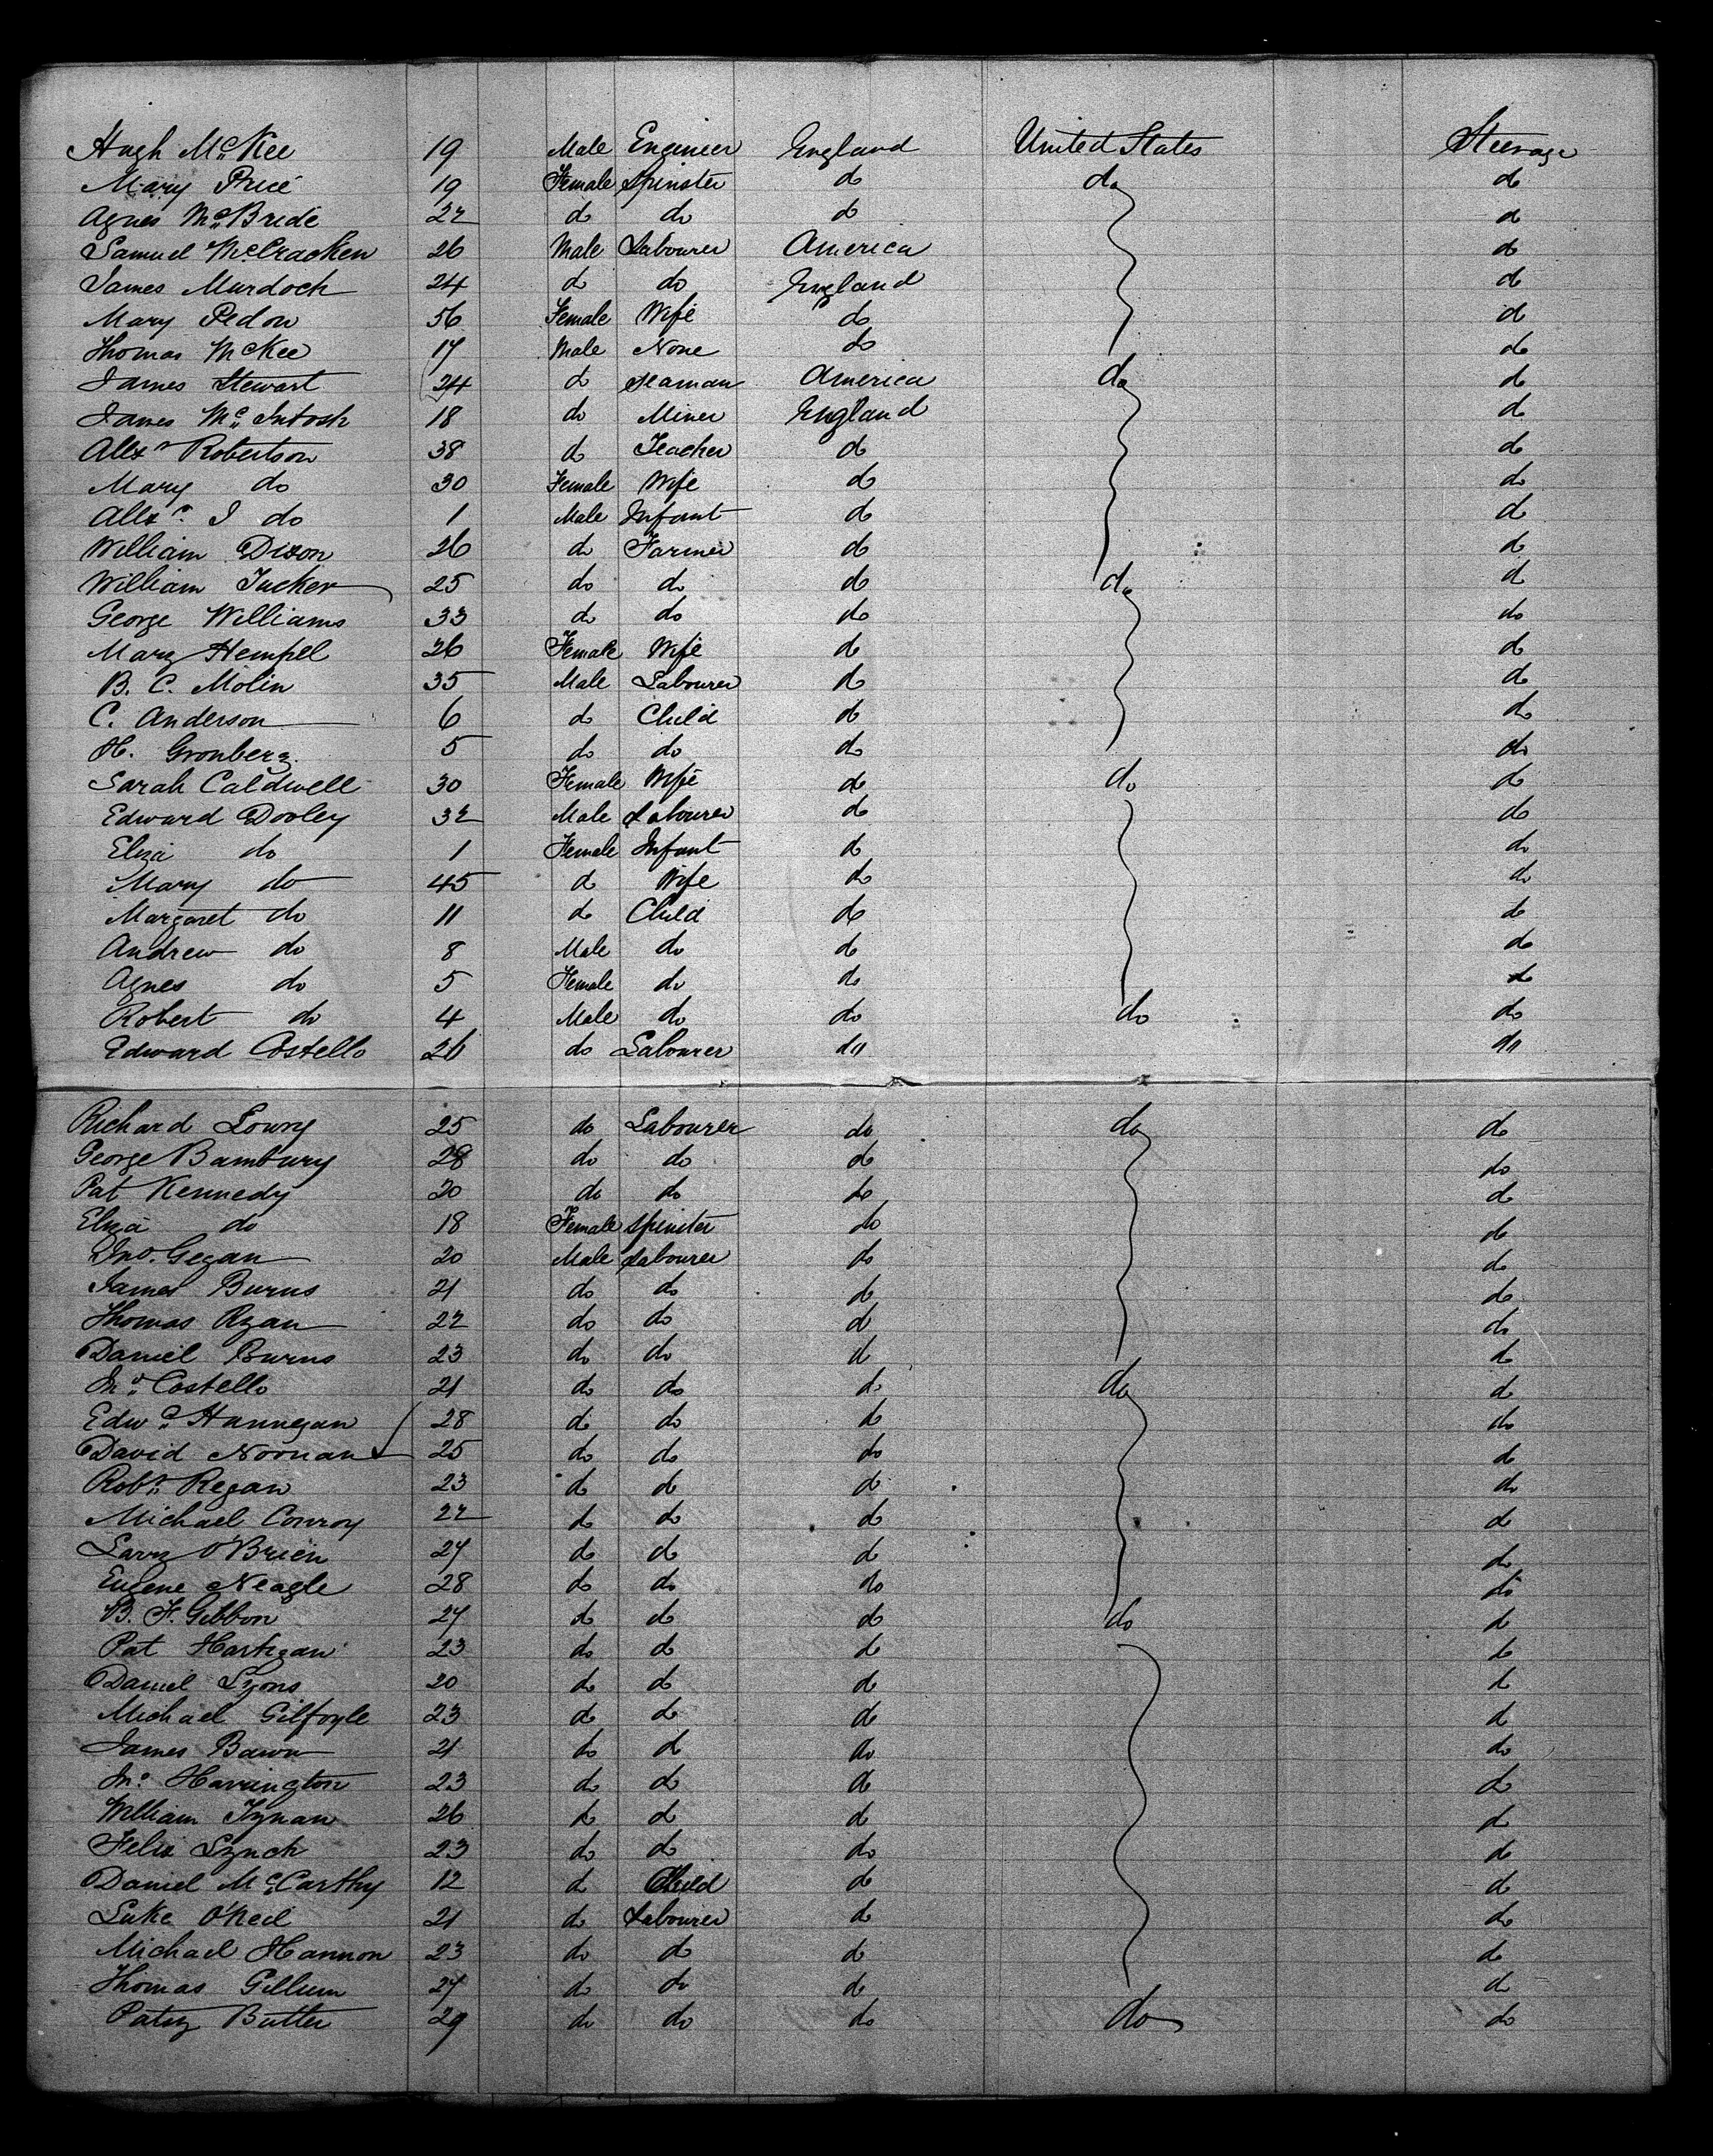 Hugh McKee 19 Male Engineer England United States Steerage
Mary Price 19 Female Spinster do do do
Agnes McBride 22 do do do do
Samuel McCracken 26 Male Labourer America do
James Murdoch 24 do do England do
Mary Pedon 56 Female Wife do do
Thomas McKee 17 Male None do do
James Stewart 24 do Seaman America do do
James McIntosh 18 do Miner England do
Alexr Robertson 38 do Teacher do do
Mary do 30 Female Wife do do
Alexr J do 1 Male Infant do do
William Dixon 26 do Farmer do do
William Tucker 25 do do do do do
George Williams 33 do do do do
Mary Hempel 26 Female Wife do do
B. C. Molin 35 Male Labourer do do
C. Anderson 6 do Child do do
H. Gronberg 5 do do do do
Sarah Caldwell 30 Female Wife do do do
Edward Dooley 32 Male Labourer do do
Eliza do 1 Female Infant do do
Mary do 45 do Wife do do
Margaret do 11 do Child do do
Andrew do 8 Male do do do
Agnes do 5 Female do do do
Robert do 4 Male do do do do
Edward Costello 26 do Labourer do do
Richard Lowry 25 do Labourer do do do
George Bambury 28 do do do do
Pat Kennedy 20 do do do do
Eliza do 18 Female Spinster do do
Jno. Gegan 20 Male Labourer do do
James Burns 21 do do do do
Thomas Ryan 22 do do do do
Daniel Burns 23 do do do do
Jno Costello 21 do do do do do
Edwd Hannegan 28 do do do do
David Noonan 25 do do do do
Robt Regan 23 do do do do
Michael Conroy 22 do do do do
Larry O'Brien 27 do do do do
Eugene Neagle 28 do do do do
B. F. Gibbon 27 do do do do do
Pat Hartigan 23 do do do do
Daniel Lyons 20 do do do do
Michael Gilfoyle 23 do do do do
James Bawn 21 do do do do
Jno Harrington 23 do do do do
William Tynan 26 do do do do
Felix Lynch 23 do do do do
Daniel McCarthy 12 do Child do do
Luke O'Neil 21 do Labourer do do
Michael Hannon 23 do do do do
Thomas Gillum 27 do do do do
Patsy Butler 29 do do do do do